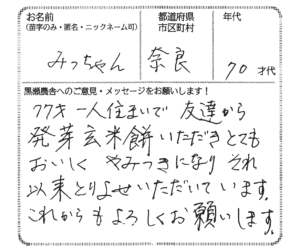 お名前
(苗字のみ・匿名・ニックネーム可)
都道府県
市区町村
年代
みっちゃん
奈良
70才代
黒瀬農舎へのご意見・メッセージをお願いします!
77才一人住まいで 友達から
発芽玄米餅いただきとても
おいしく やみつきになり それ
以来とりよせいただいています。
これからもよろしくお願いします。